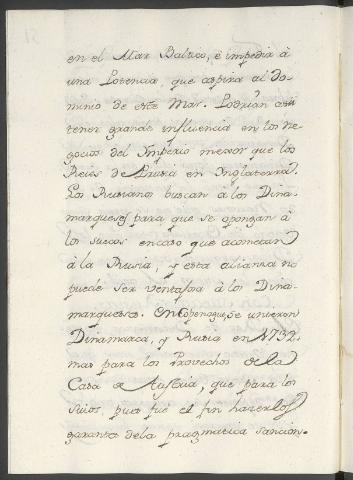 en el Mar Baltico, è impedir à
una Potencia, que aspira al do-
minio de este Mar. Podrian assi
tener grande influencia en los ne-
gocios del Imperio menor que los
Reies de Prusia en Inglaterra.
Los Rusianos buscan à los Dina-
marqueses para que se opongan à
los suecos en caso que acometan
à la Rusia, y esta alianza no
puede ser ventajosa à los Dina-
marqueses. En Copenague, se unieron
Dinamarca, y Rusia en 1732.
mas para los Provechos de la
Casa de Austria, que para los
suios, pues fuè el fin hazerlos
garantes de la pragmatica sancion.